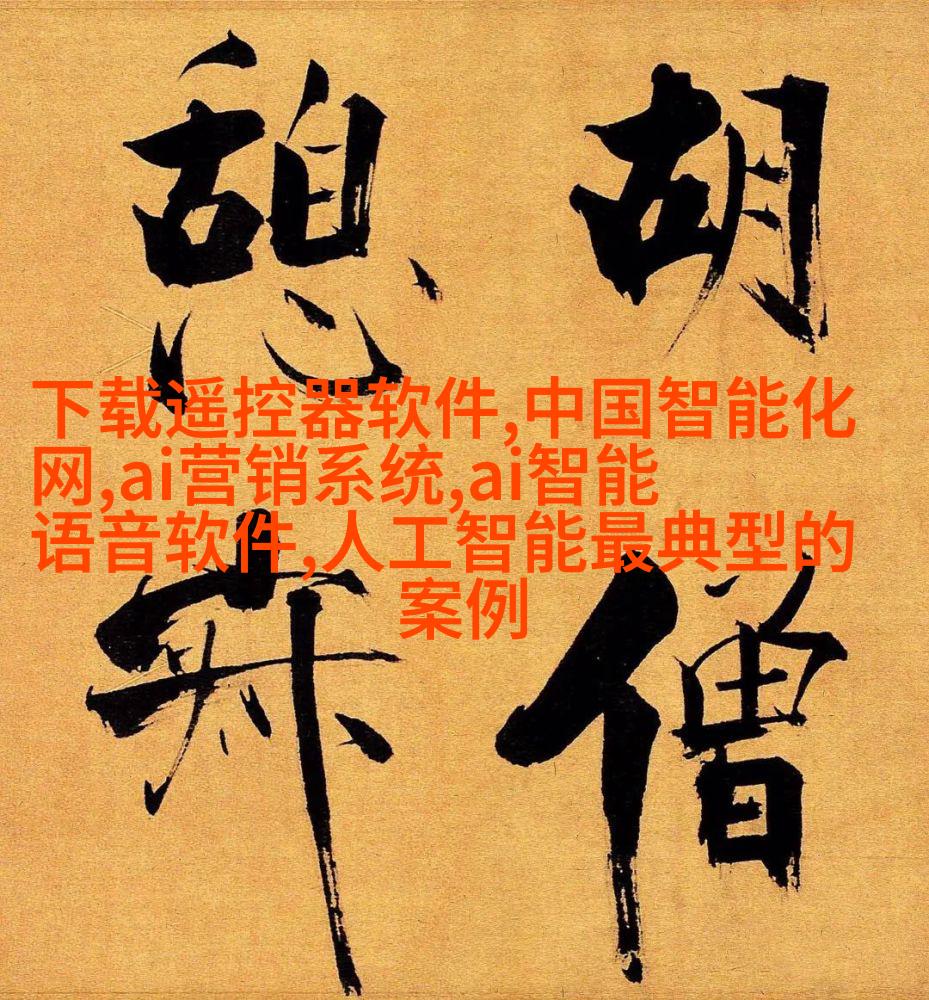 胡僧
憩寂
下载遥控器软件,中国智能化
网,ai营销系统,ai智能
语音软件,人工智能最典型的
案例